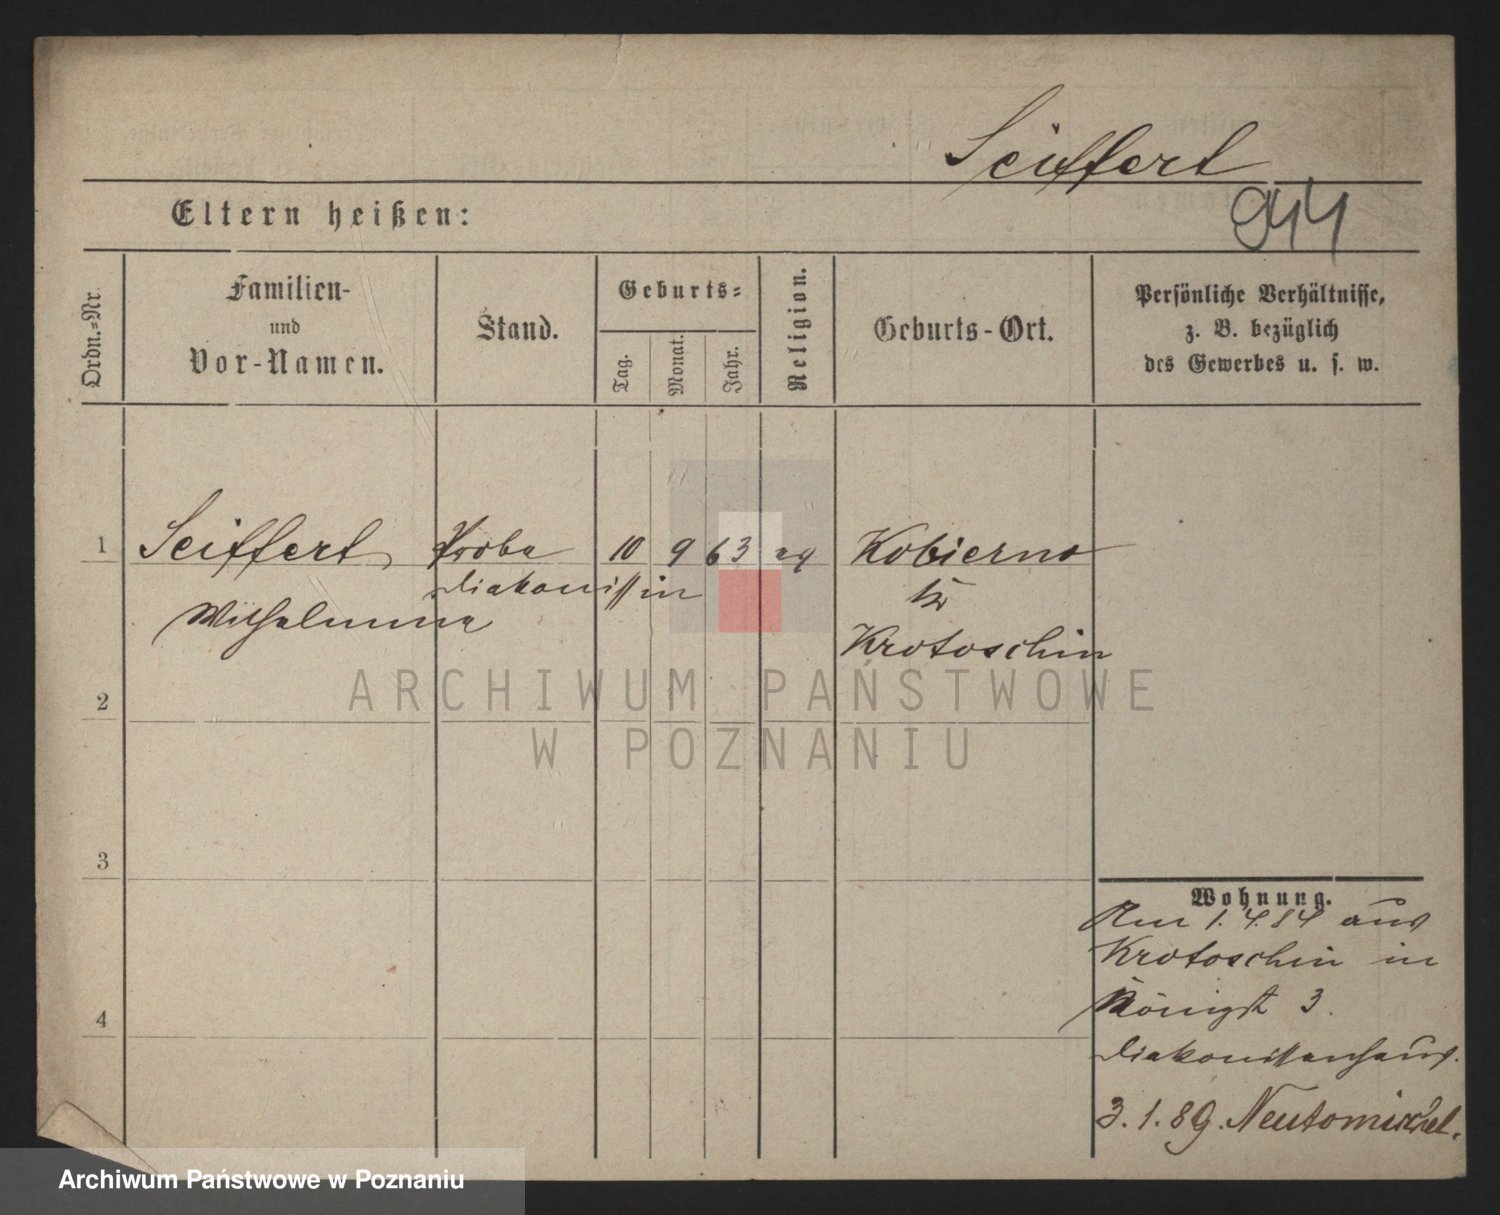 Seiffert
944
Eltern heißen:
Ordn.=Nr.
Familien-
und
Vor-Namen.
Stand.
Geburts=
Tag.
Monat.
Jahr.
Religion.
Geburts-Ort.
Persönliche Verhältnisse,
z. B. bezüglich
des Gewerbes u. s. w.
1
Seiffert
Wilhelmine
Probe
diakonissin
10
9
63
ev
Kobierno
Kr
Krotoschin
2
3
4
Wohnung.
Am 1.4.84 aus
Krotoschin in
Königst 3.
Diakonissenhaus.
3.1.89. Neutomischel.
ARCHIWUM PAŃSTWOWE
W POZNANIU
Archiwum Państwowe w Poznaniu